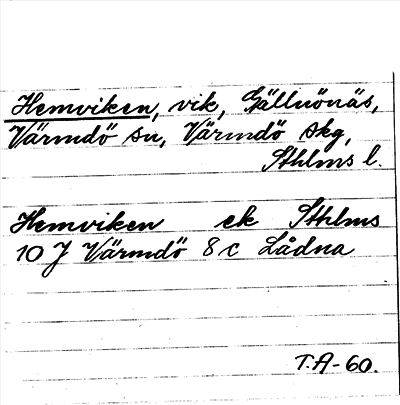 Hemviken, vik, Gällnönäs,
Värmdö sn, Värmdö skg,
Sthlms l.
Hemviken ek Sthlms
10 J Värmdö 8 c Lådna
T.A-60.